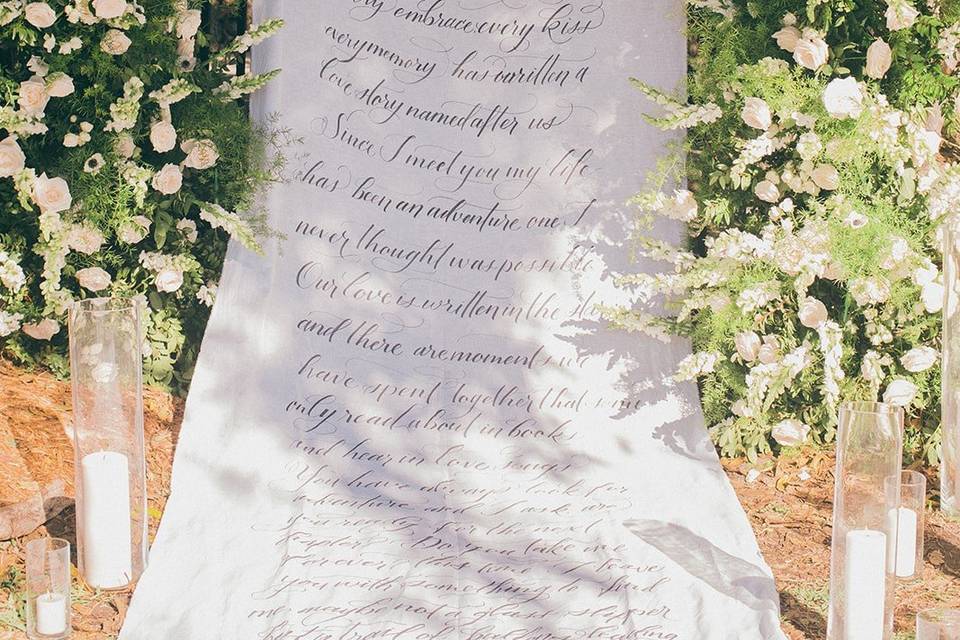 embrace every kiss
every memory has written a
love story named after us
Since I meet you my life
has been an adventure one I
never thought was possible
Our love is written in the stars
and there are moments we
have spent together that some
only read about in books
and hear in love songs
You have always look for
adventure and I ask are
you ready for the next
Do you take me
Forever this time I leave
you with something to find
me maybe not a glass slipper
trail of leading